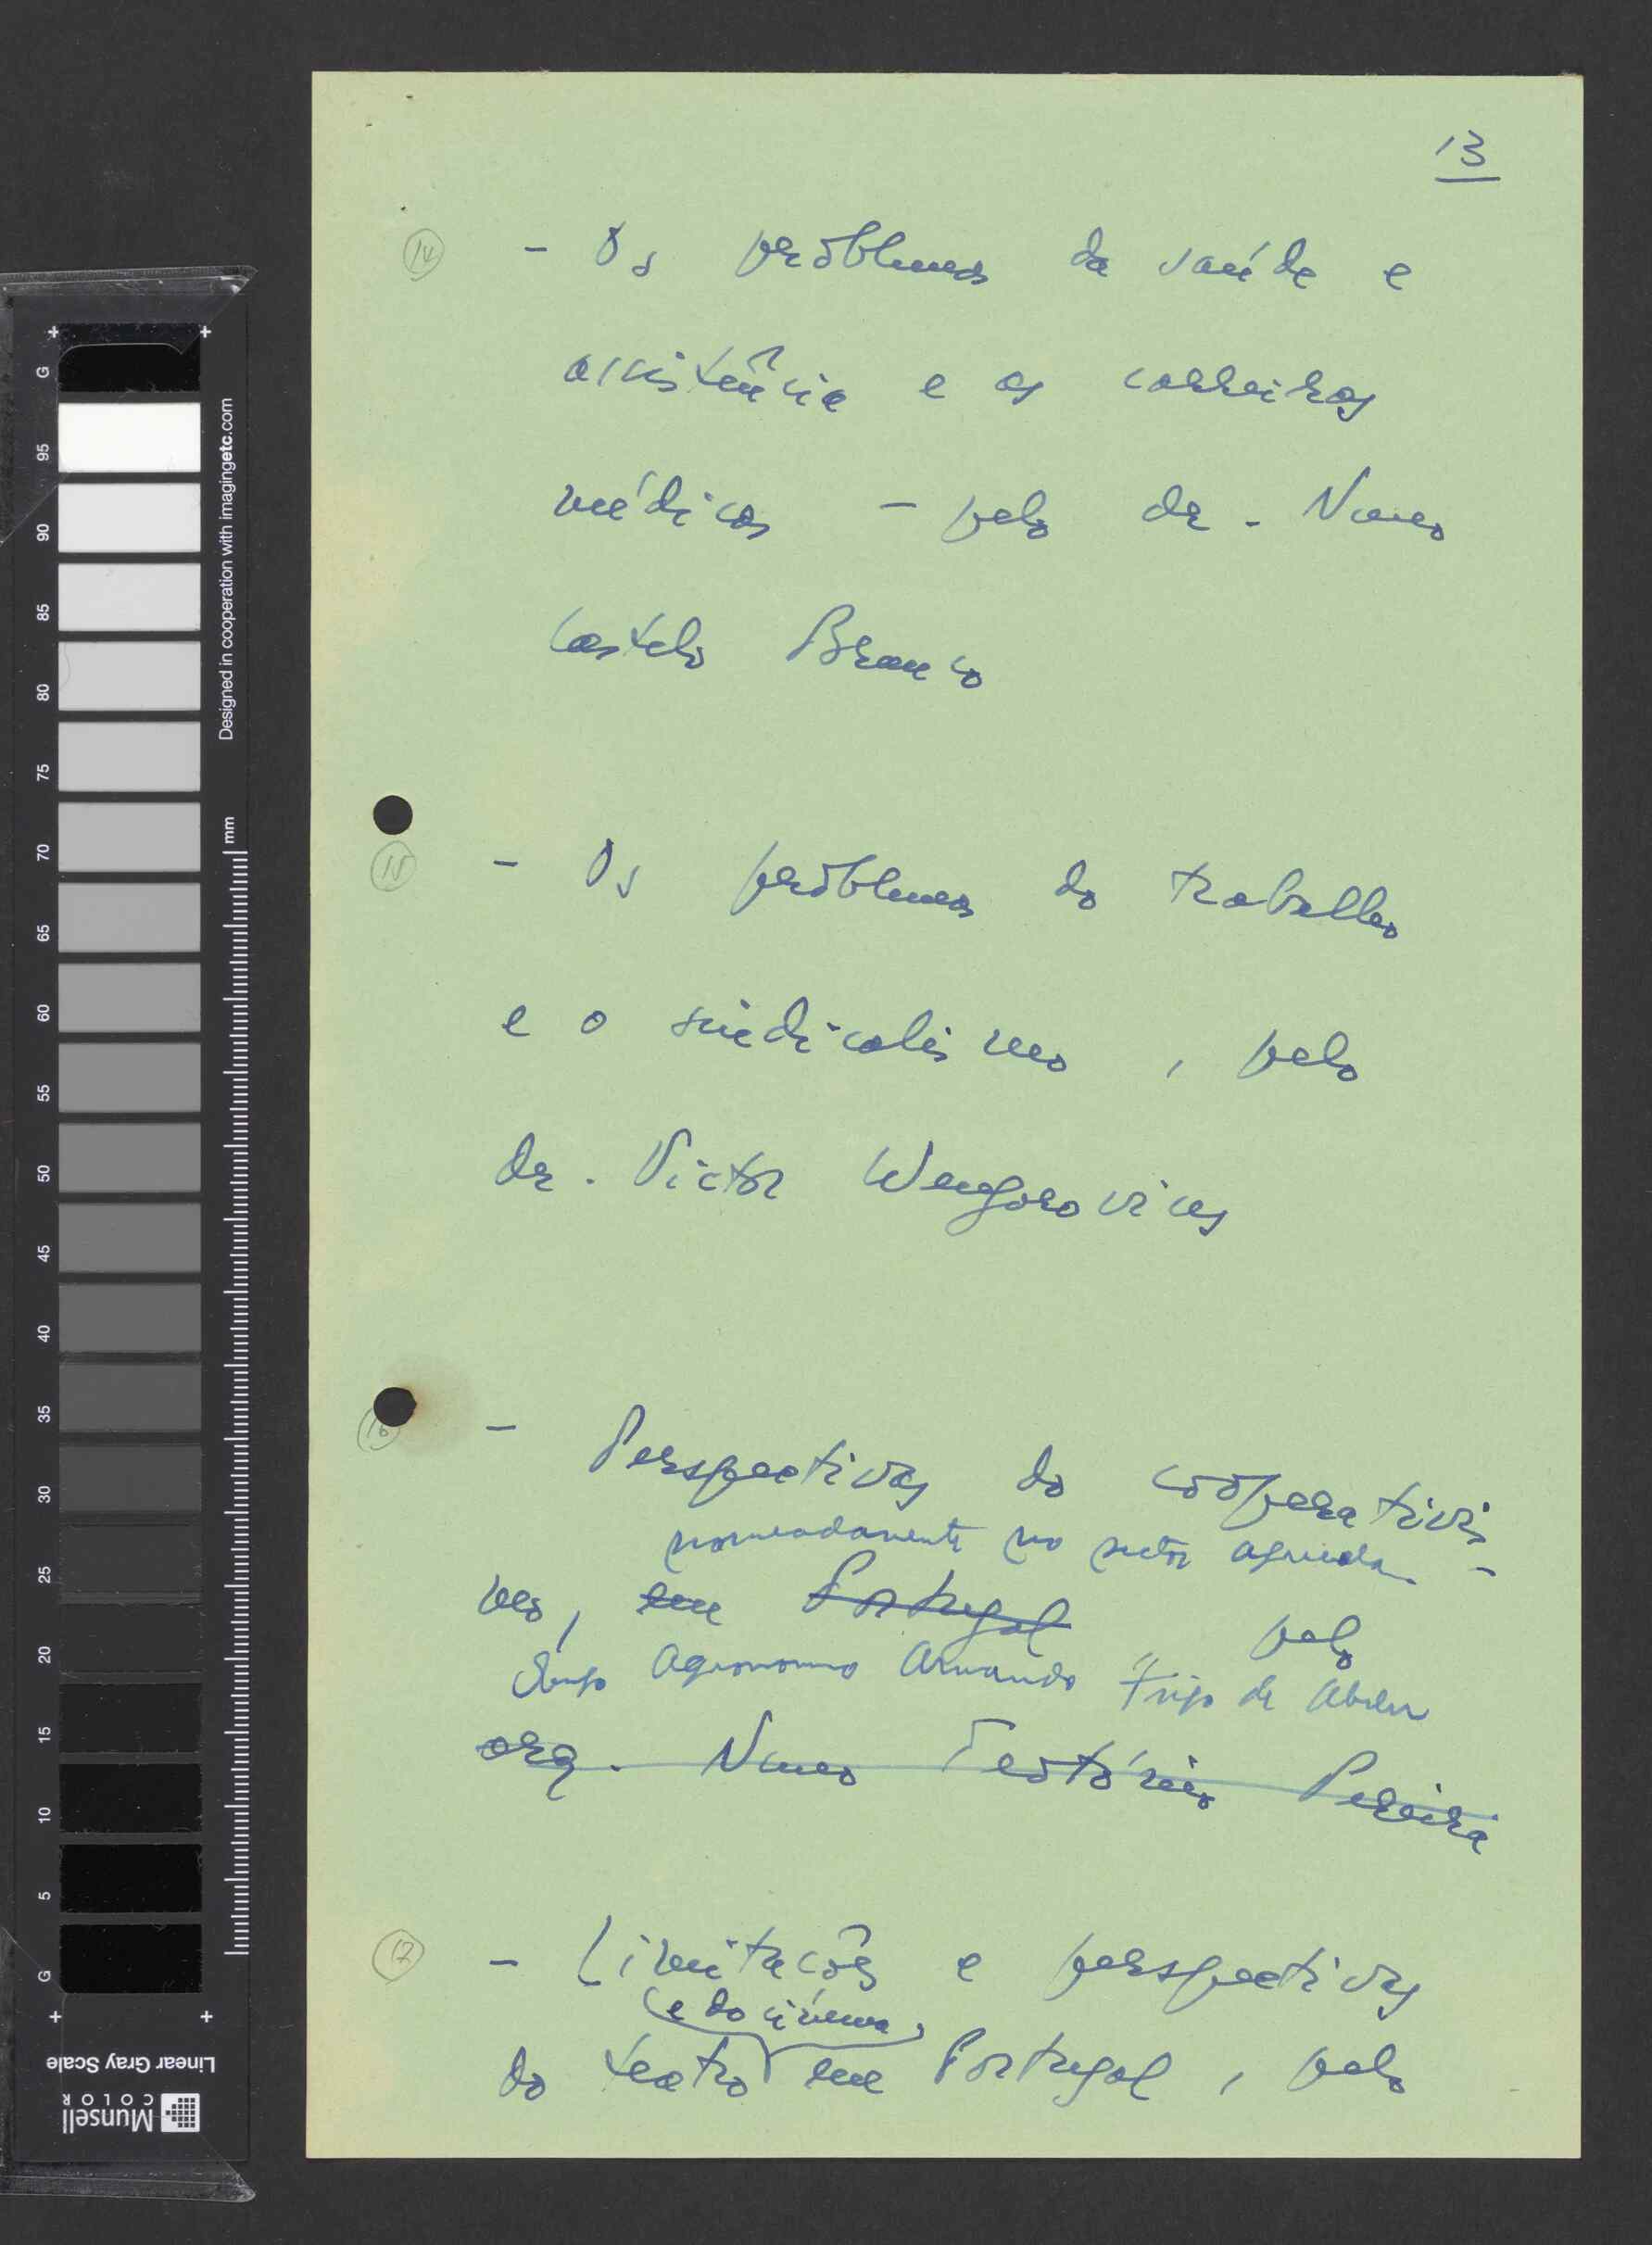 13
14 - Os problemas da saúde e
assistência e as carreiras
médicas - pelo dr. Nuno
Castelo Branco
15 - Os problemas do trabalho
e o sindicalismo, pelo
dr. Victor Wengorovics
16 - Perspectivas do cooperativis-
nomeadamente no sector agricola
mo, em Portugal pelo
Engo Agronomo Armando Trigo de Abreu
arq. Nuno Teotónio Pereira
17 - Limitações e perspectivas
(e do cinema)
do teatro em Portugal, pelo
G 95 90 85 80 75 70 65 60 55 50 45 40 35 30 25 20 15 10 5 G
Designed in cooperation with imagingetc.com
mm
Linear Gray Scale
Munsell
COLOR